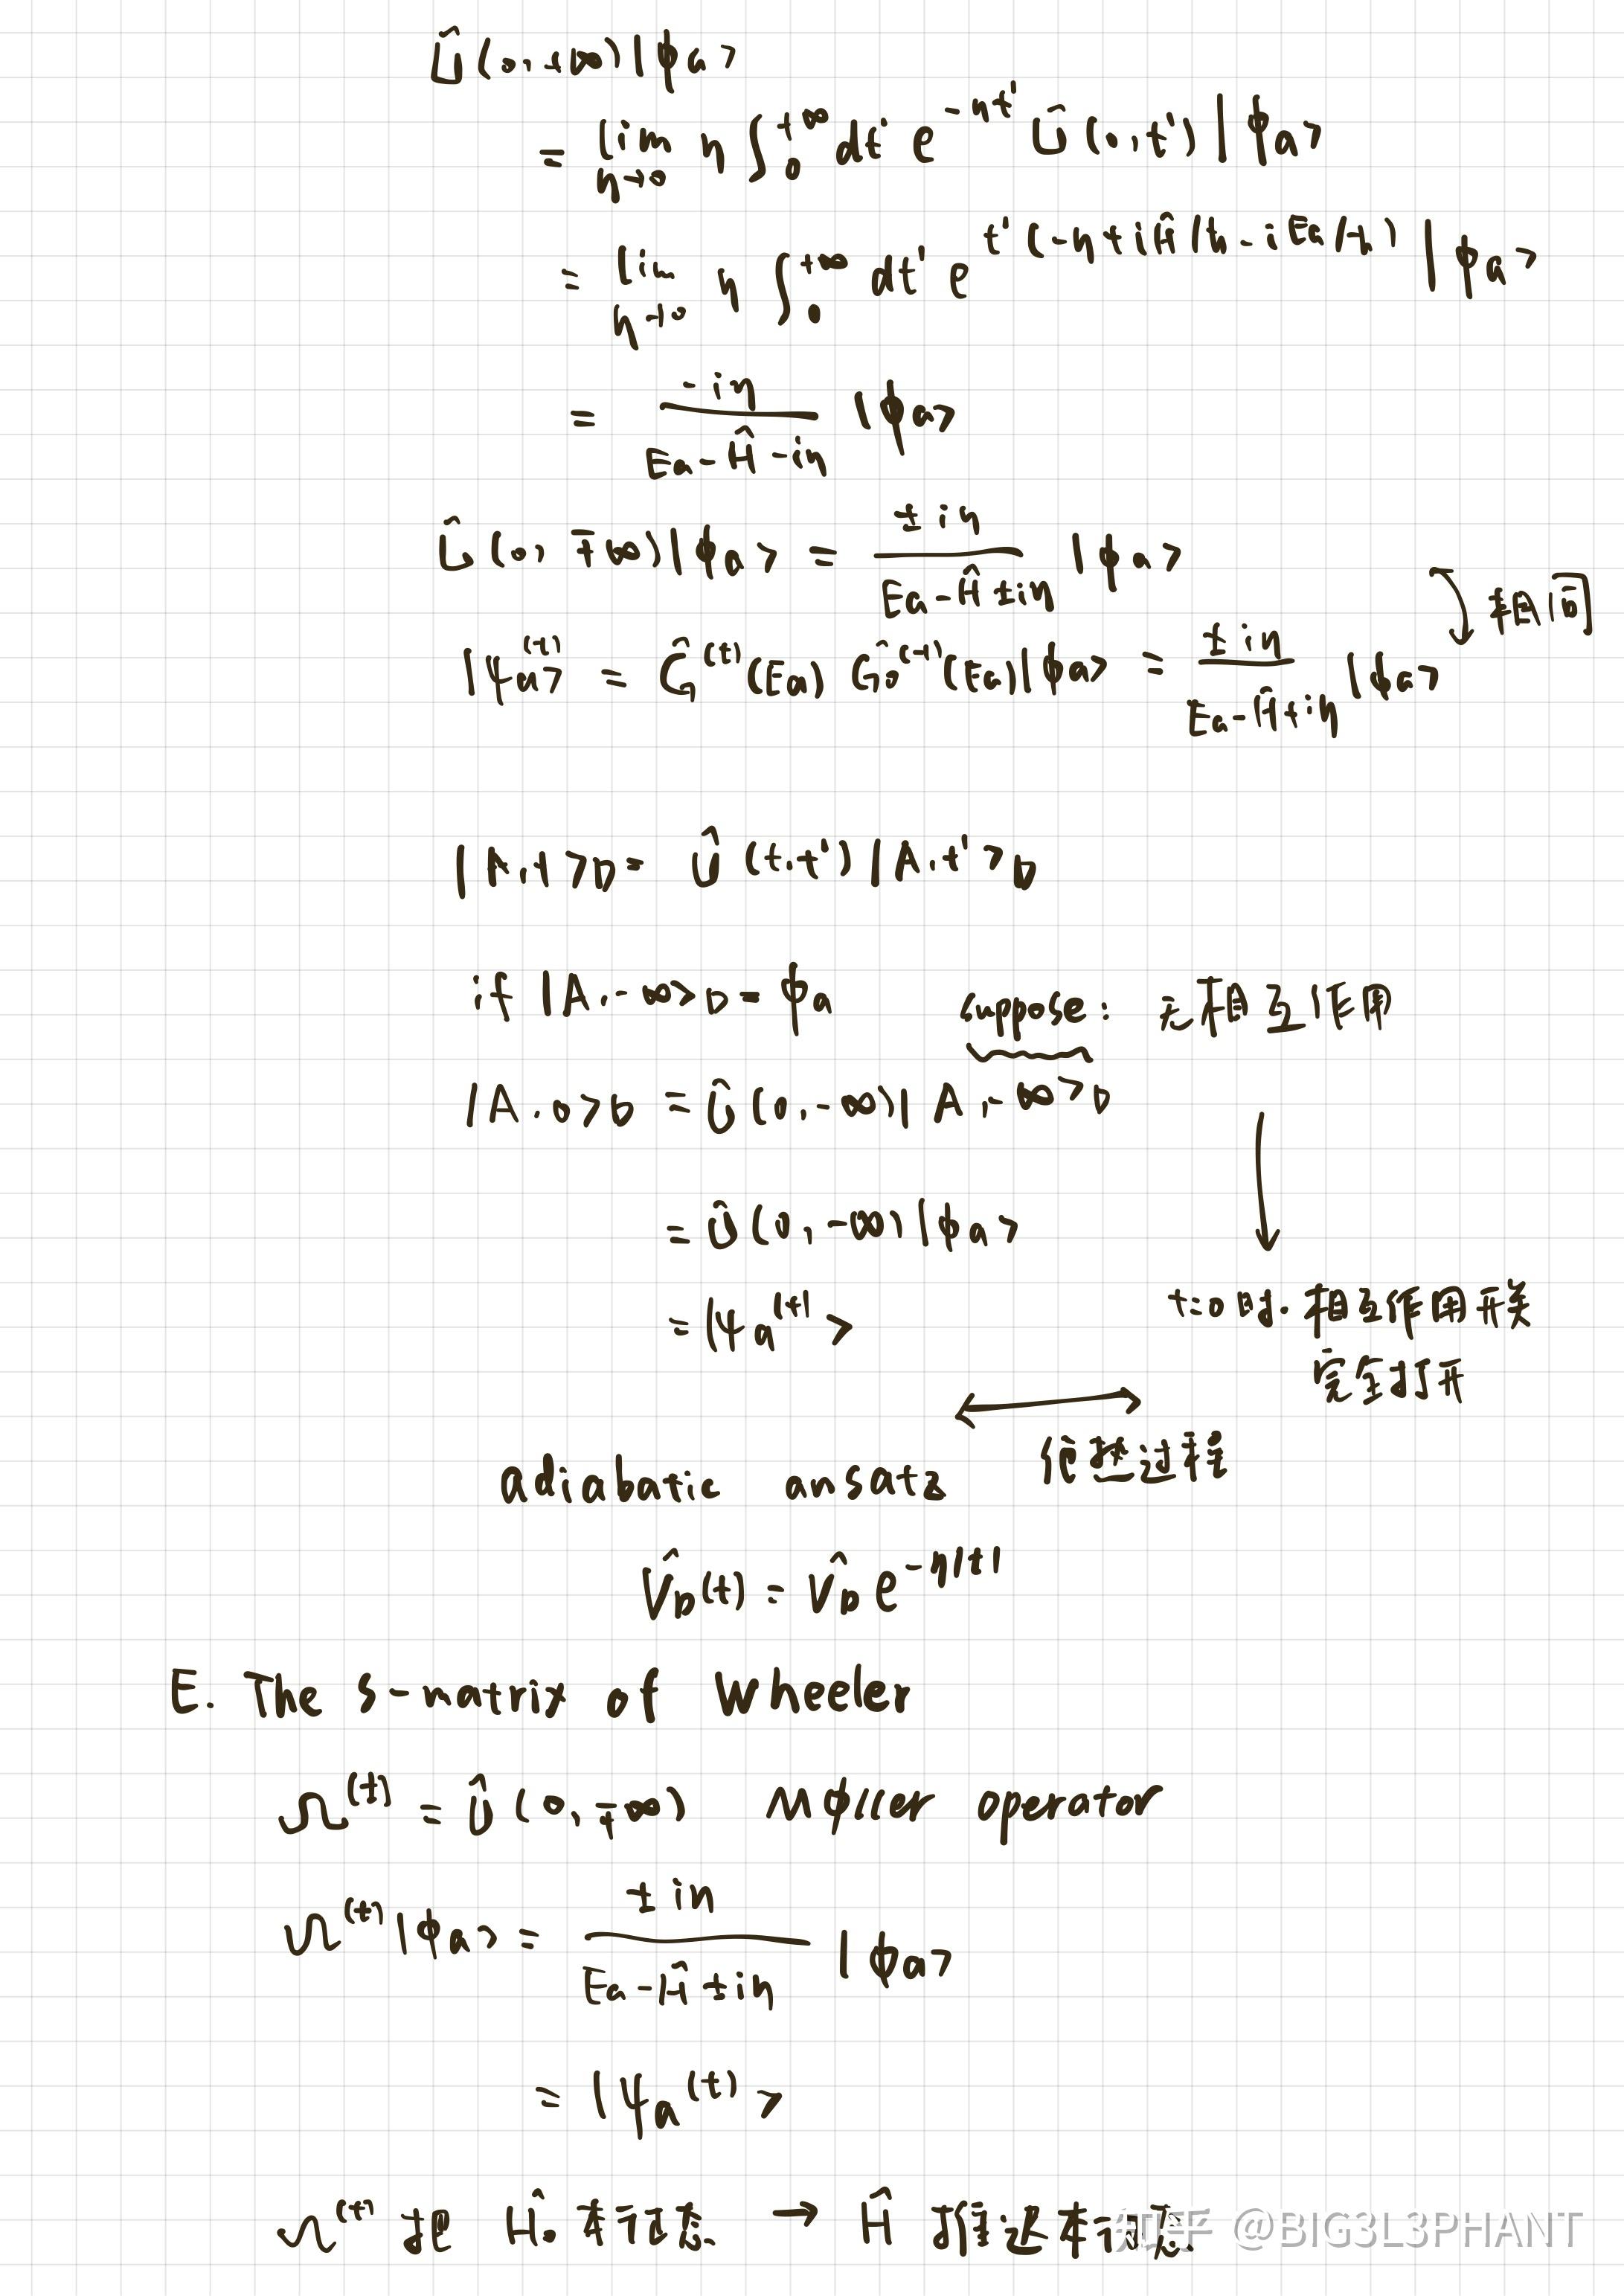 Û(0,+∞)|ϕa>
= lim η→0 η ∫₀^{+∞} dt' e^{-ηt'} Û(0,t')|ϕa>
= lim η→0 η ∫₀^{+∞} dt' e^{t'(-η+iĤ/ħ-iEa/ħ)} |ϕa>
= -iη / (Ea-Ĥ-iη) |ϕa>
Û(0,∓∞)|ϕa> = ±iη / (Ea-Ĥ±iη) |ϕa>
相同
|ψa^{(±)}> = Ĝ^{(±)}(Ea) Ĝ₀^{(-1)}(Ea)|ϕa> = ±iη / (Ea-Ĥ±iη) |ϕa>
|A,t>_D = Û(t,t')|A,t'>_D
if |A,-∞>_D = ϕa suppose: 无相互作用
|A,0>_D = Û(0,-∞)|A,-∞>_D
= Û(0,-∞)|ϕa>
= |ψa^{(+)}>
t=0时,相互作用开关
完全打开
adiabatic ansatz ↔ 绝热过程
V̂_D(t) = V̂_D e^{-η|t|}
E. The S-matrix of Wheeler
Ω^{(±)} = Û(0,∓∞) Møller operator
Ω^{(±)}|ϕa> = ±iη / (Ea-Ĥ±iη) |ϕa>
= |ψa^{(±)}>
Ω^{(+)} 把 Ĥ₀ 本征态 → Ĥ 推迟本征态
知乎 @BIG3L3PHANT